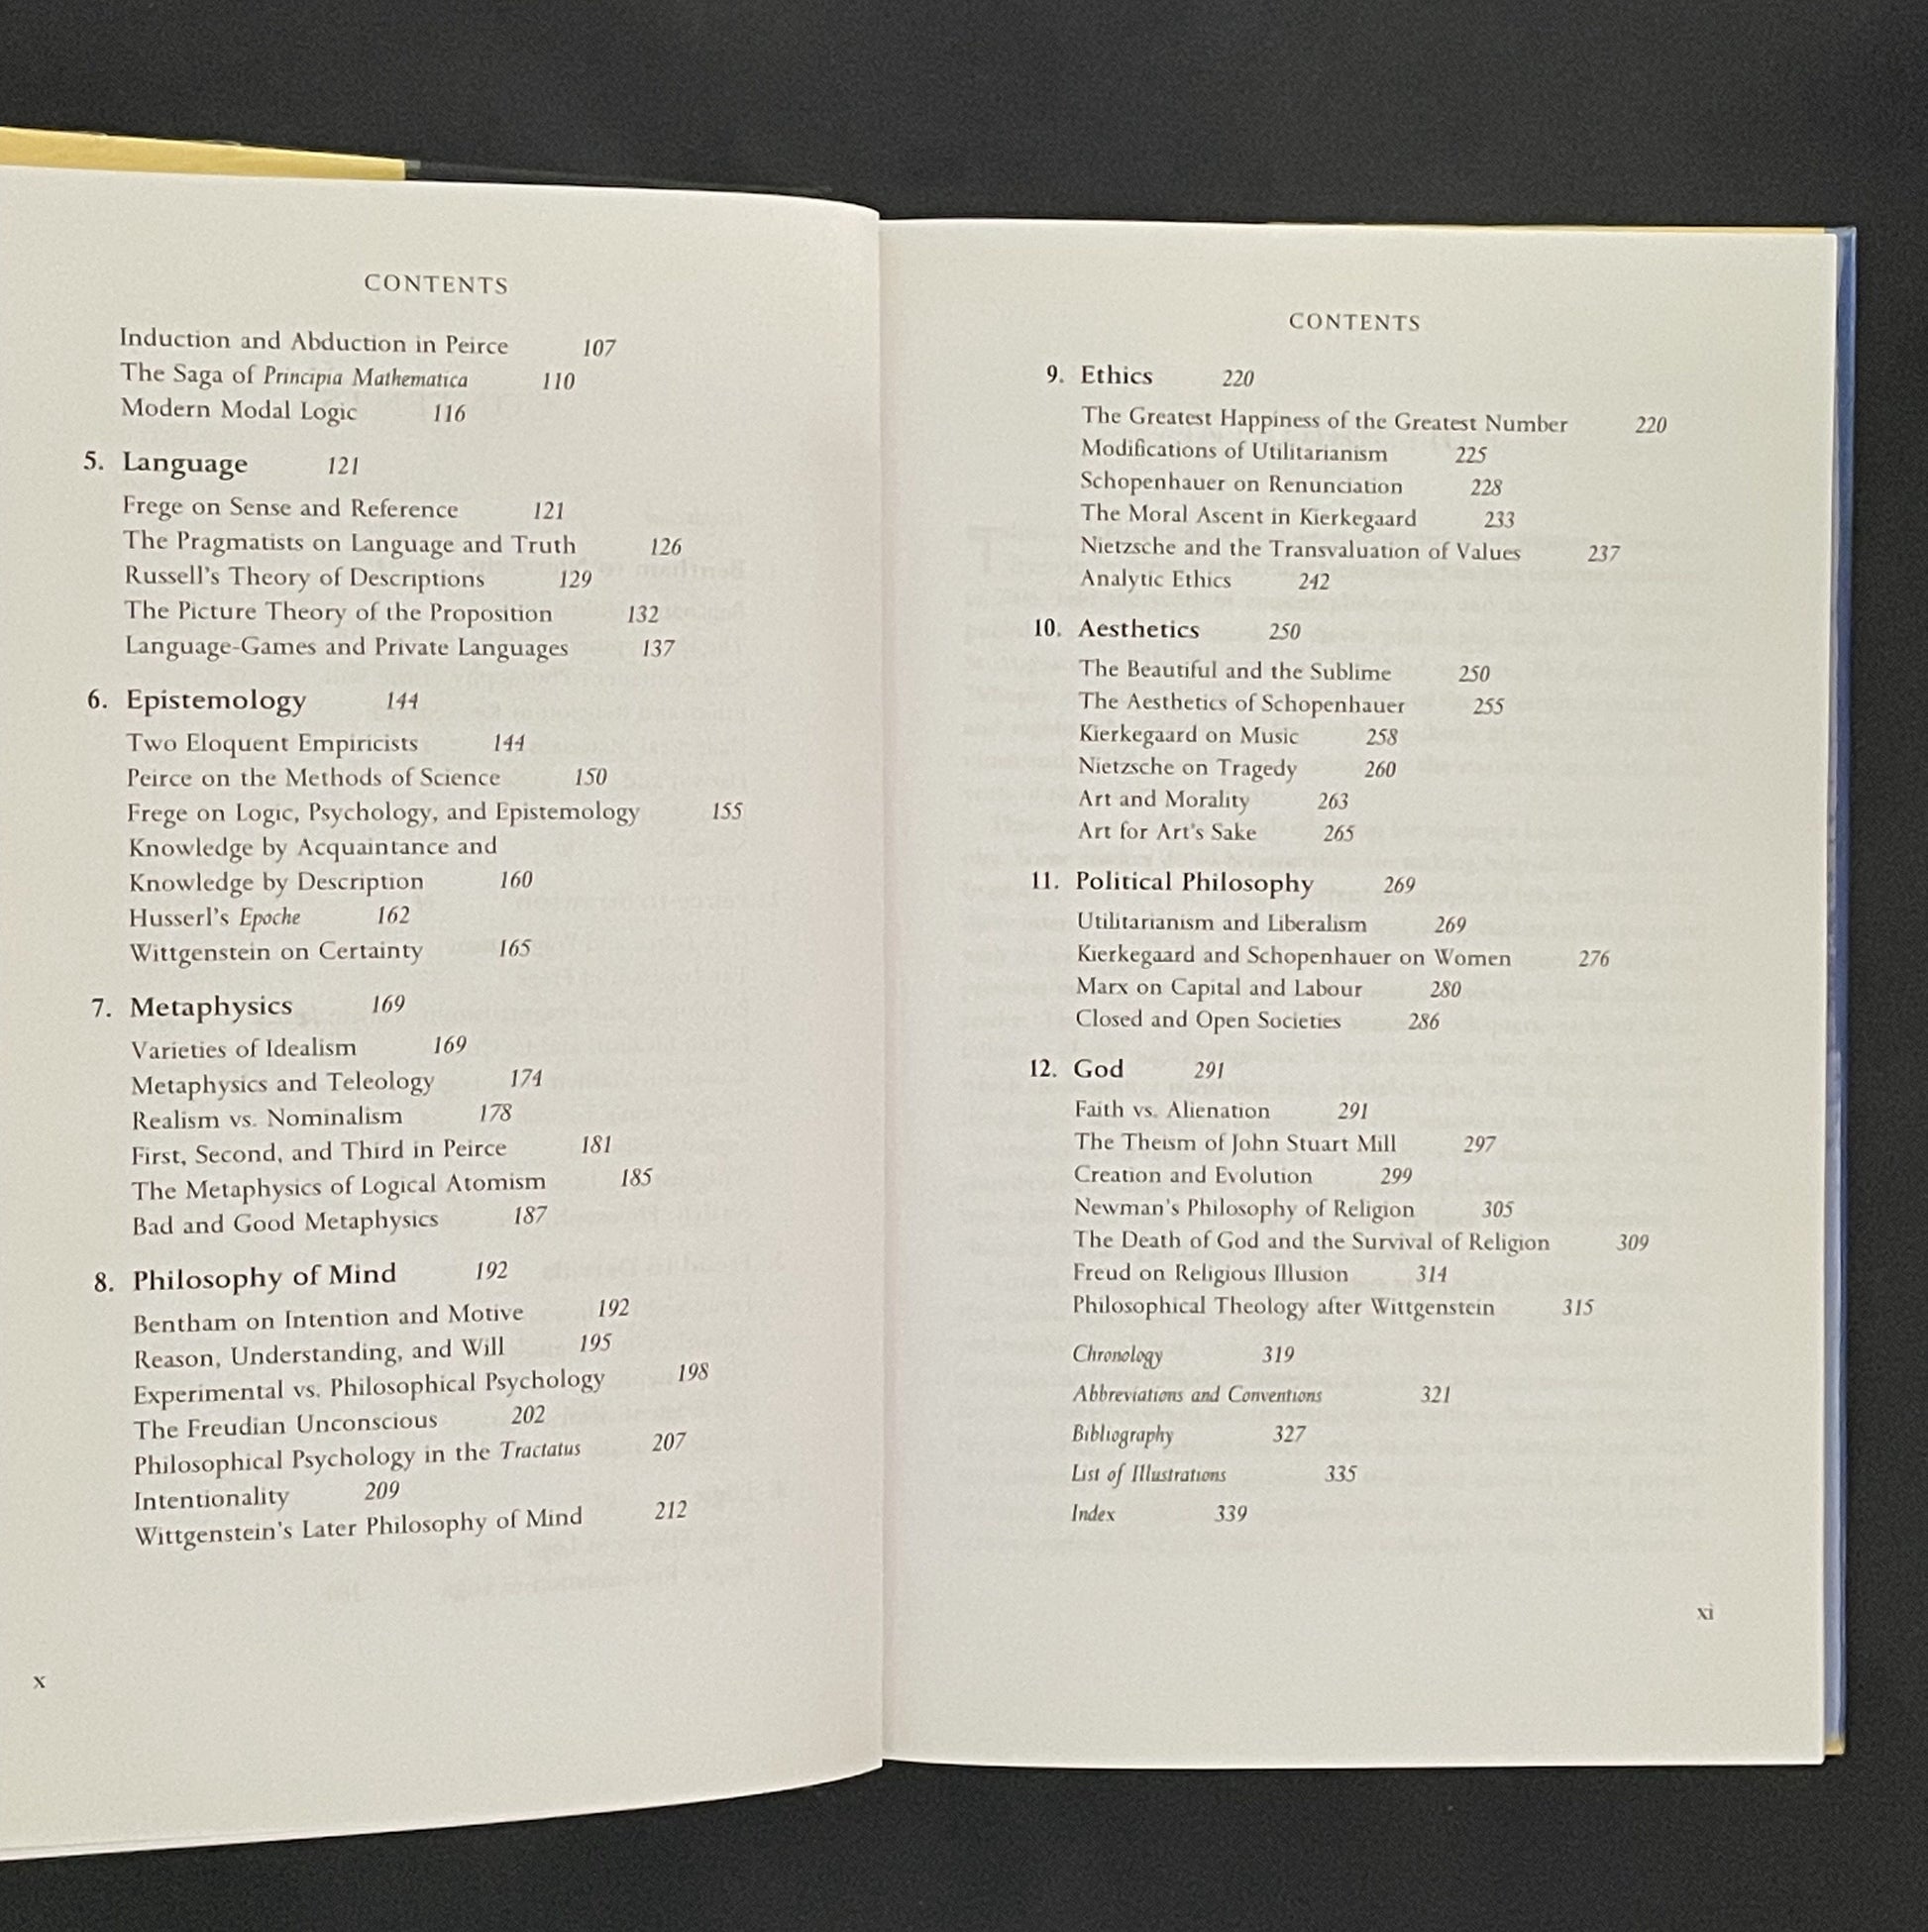 CONTENTS
Induction and Abduction in Peirce 107
The Saga of Principia Mathematica 110
Modern Modal Logic 116
5. Language 121
Frege on Sense and Reference 121
The Pragmatists on Language and Truth 126
Russell's Theory of Descriptions 129
The Picture Theory of the Proposition 132
Language-Games and Private Languages 137
6. Epistemology 144
Two Eloquent Empiricists 144
Peirce on the Methods of Science 150
Frege on Logic, Psychology, and Epistemology 155
Knowledge by Acquaintance and
Knowledge by Description 160
Husserl's Epoche 162
Wittgenstein on Certainty 165
7. Metaphysics 169
Varieties of Idealism 169
Metaphysics and Teleology 174
Realism vs. Nominalism 178
First, Second, and Third in Peirce 181
The Metaphysics of Logical Atomism 185
Bad and Good Metaphysics 187
8. Philosophy of Mind 192
Bentham on Intention and Motive 192
Reason, Understanding, and Will 195
Experimental vs. Philosophical Psychology 198
The Freudian Unconscious 202
Philosophical Psychology in the Tractatus 207
Intentionality 209
Wittgenstein's Later Philosophy of Mind 212
x
CONTENTS
9. Ethics 220
The Greatest Happiness of the Greatest Number 220
Modifications of Utilitarianism 225
Schopenhauer on Renunciation 228
The Moral Ascent in Kierkegaard 233
Nietzsche and the Transvaluation of Values 237
Analytic Ethics 242
10. Aesthetics 250
The Beautiful and the Sublime 250
The Aesthetics of Schopenhauer 255
Kierkegaard on Music 258
Nietzsche on Tragedy 260
Art and Morality 263
Art for Art's Sake 265
11. Political Philosophy 269
Utilitarianism and Liberalism 269
Kierkegaard and Schopenhauer on Women 276
Marx on Capital and Labour 280
Closed and Open Societies 286
12. God 291
Faith vs. Alienation 291
The Theism of John Stuart Mill 297
Creation and Evolution 299
Newman's Philosophy of Religion 305
The Death of God and the Survival of Religion 309
Freud on Religious Illusion 314
Philosophical Theology after Wittgenstein 315
Chronology 319
Abbreviations and Conventions 321
Bibliography 327
List of Illustrations 335
Index 339
xi